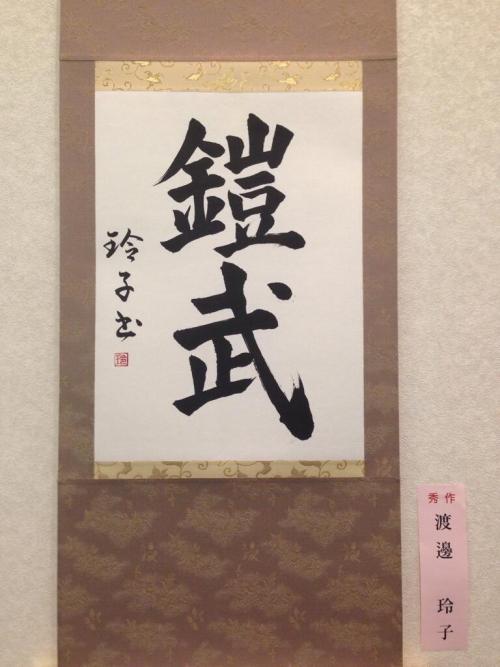 鎧武
玲子书
玲
秀作
渡邊 玲子